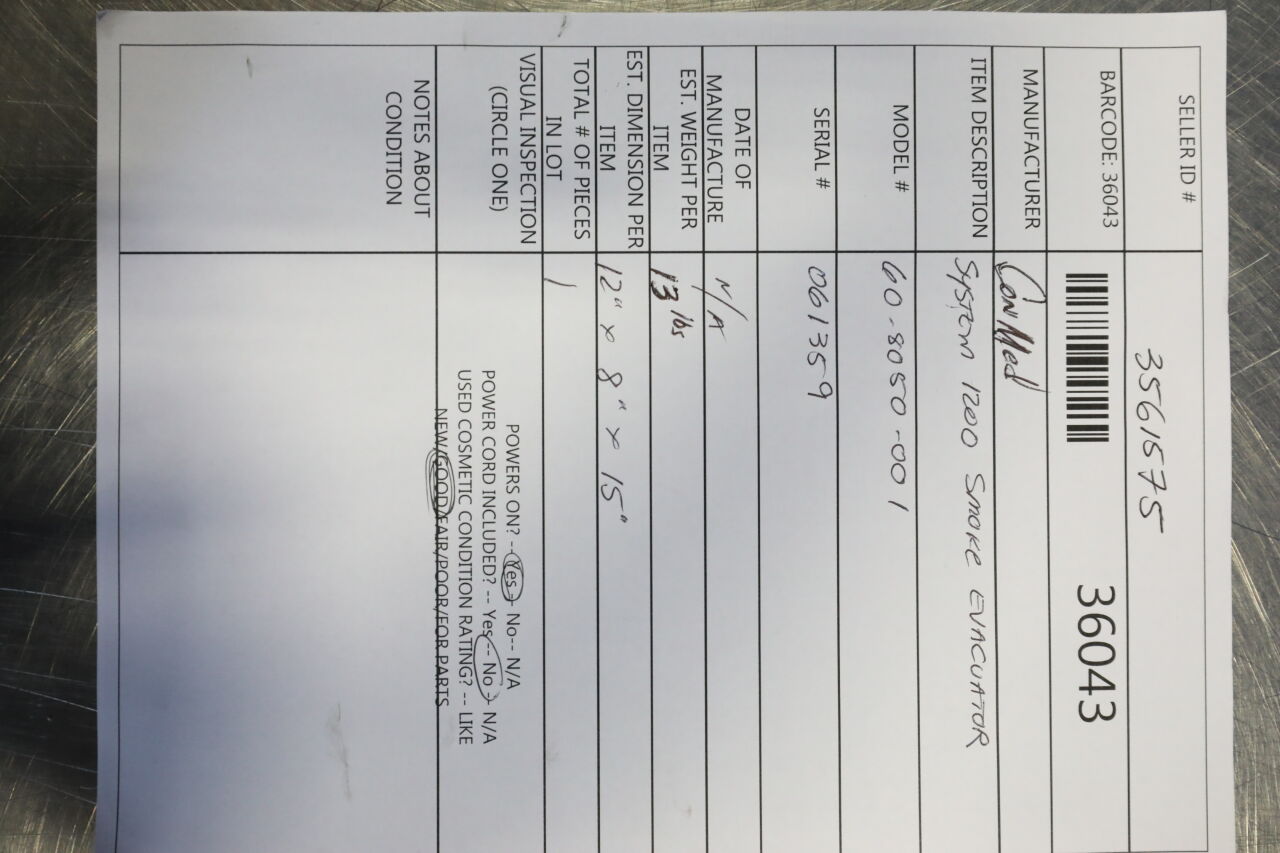 SELLER ID # 3561575
BARCODE: 36043 36043
MANUFACTURER ConMed
ITEM DESCRIPTION SYSTEM 1200 SMOKE EVACUATOR
MODEL # 60-8050-001
SERIAL # 061359
DATE OF
MANUFACTURE N/A
EST. WEIGHT PER
ITEM 13 lbs
EST. DIMENSION PER
ITEM 12" x 8" x 15"
TOTAL # OF PIECES
IN LOT 1
VISUAL INSPECTION
(CIRCLE ONE)
POWERS ON? -- Yes -- No-- N/A
POWER CORD INCLUDED? -- Yes -- No -- N/A
USED COSMETIC CONDITION RATING? -- LIKE
NEW/GOOD/FAIR/POOR/FOR PARTS
NOTES ABOUT
CONDITION